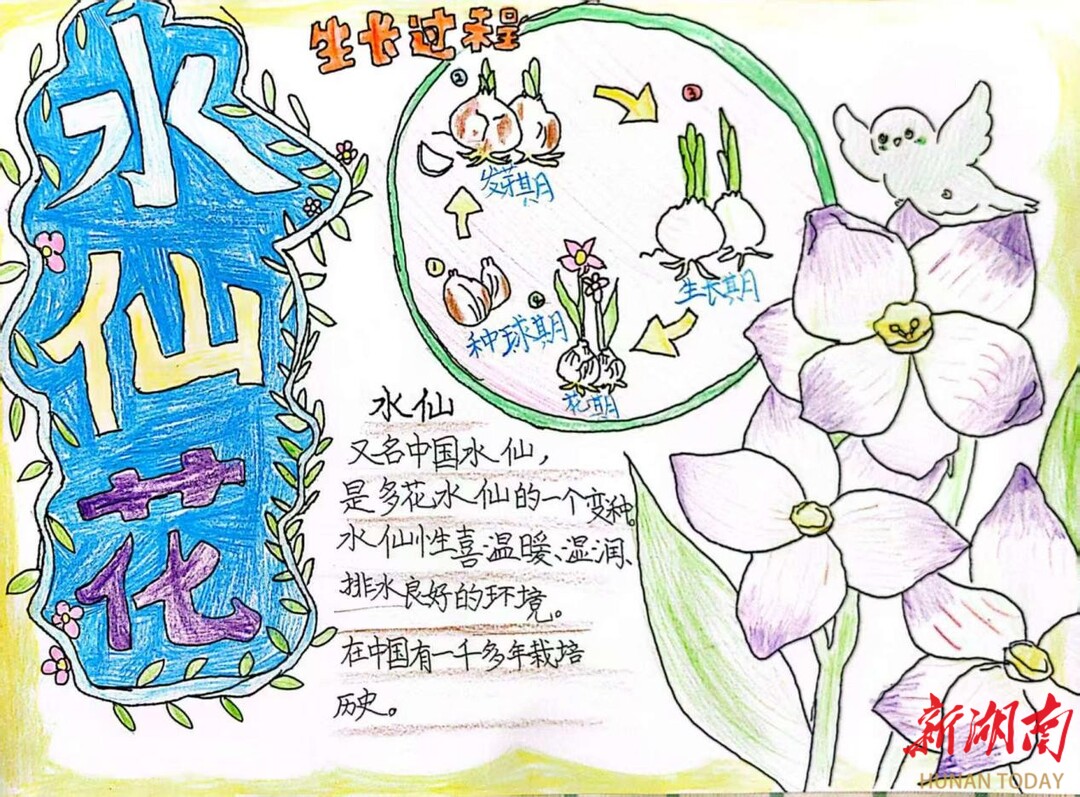 水仙花
生长过程
①
种球期
②
发芽期
③
生长期
④
花期
水仙
又名中国水仙，
是多花水仙的一个变种。
水仙性喜温暖、湿润、
排水良好的环境。
在中国有一千多年栽培
历史。
新湖南
HUNAN TODAY